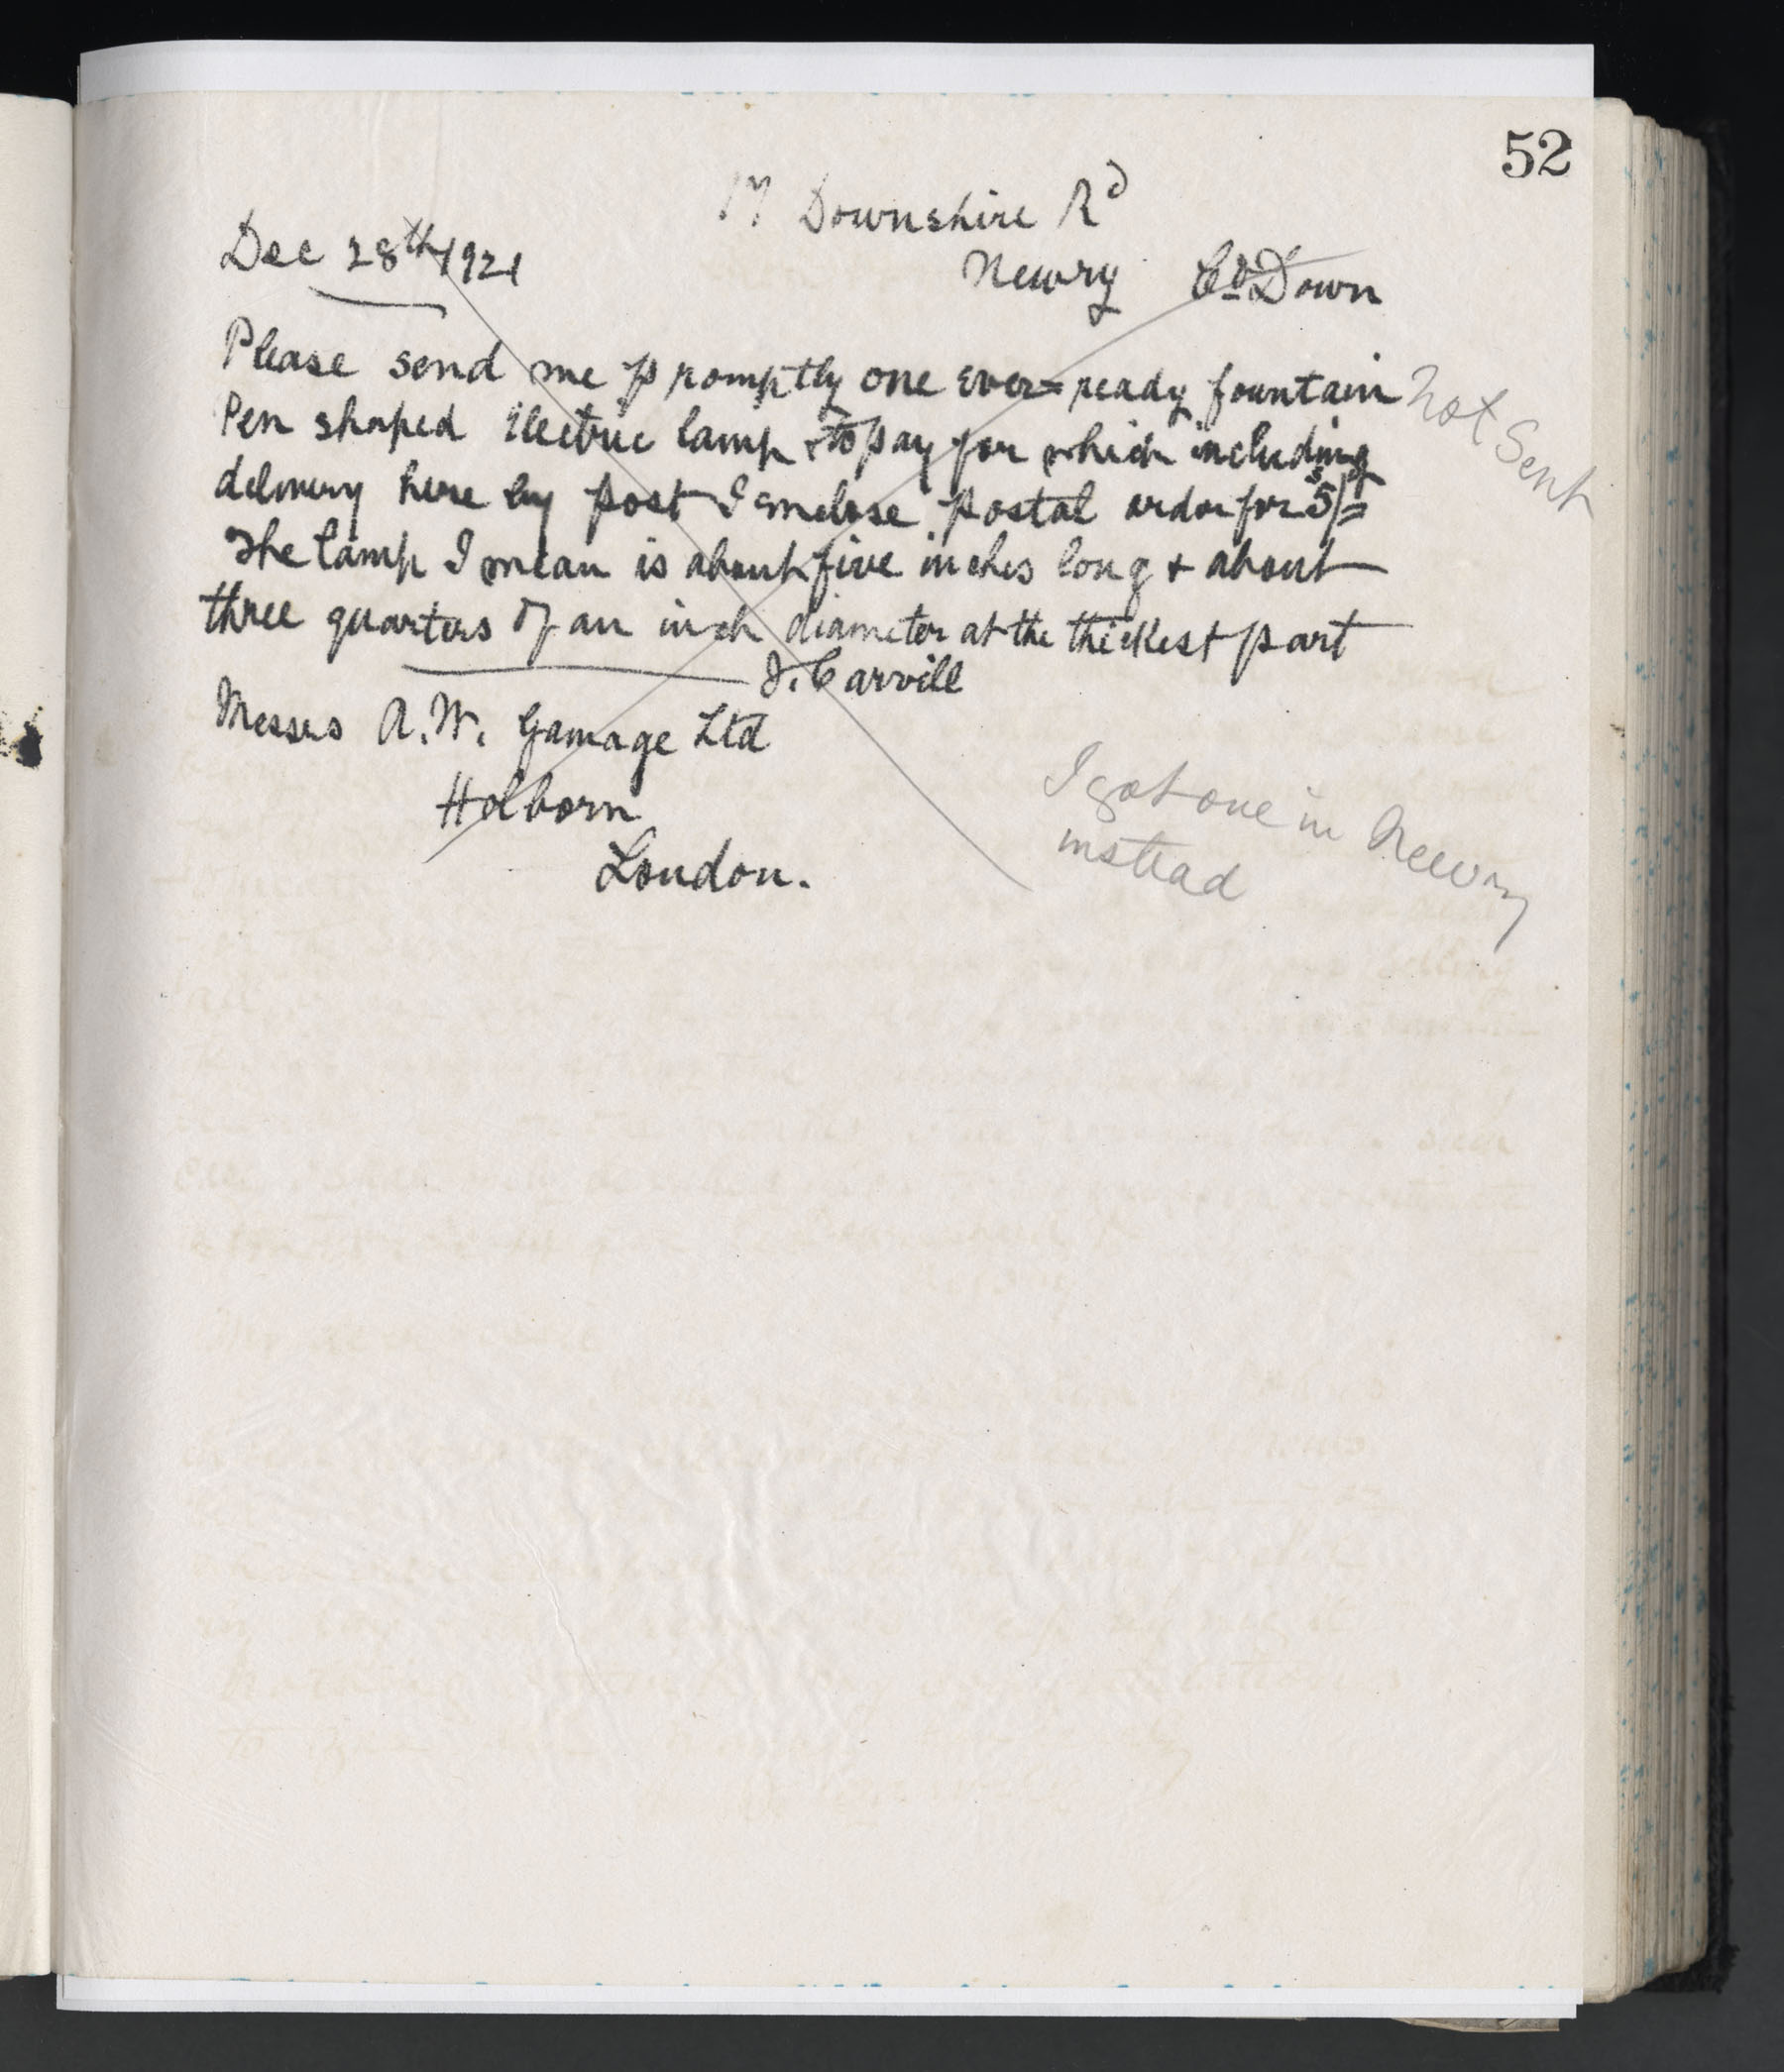 52
17 Downshire Rd
Dec 28th 1921
Newry Co Down
Please send me promptly one ever=ready fountain
Pen shaped electric lamp & to pay for which including
delivery here by post I enclose postal order for 5/=
The lamp I mean is about five inches long & about
three quarters of an inch diameter at the thickest part
J. Carvill
Messrs A. W. Gamage Ltd
Holborn
London.
Not Sent
I got one in Newry
instead